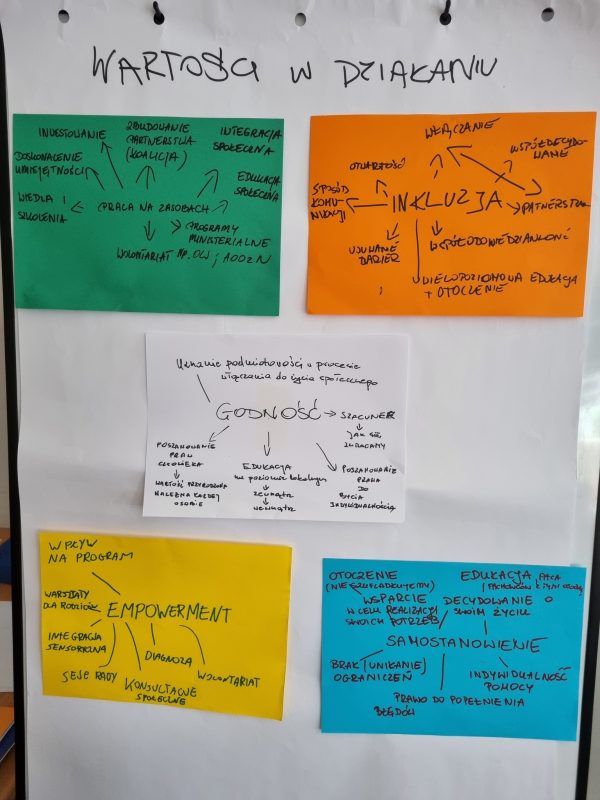 WARTOŚCI W DZIAŁANIU
INVESTOWANIE
ZBUDOWANIE
PARTNERSTWA
(KOALICJA)
INTEGRACJA
SPOŁECZNA
DOSKONALENIE
UMIEJĘTNOŚCI
EDUKACJA
SPOŁECZNA
WIEDZA I
SZKOLENIA
PRACA NA ZASOBACH
PROGRAMY
MINISTERIALNE
WOLONTARIAT NP.
WŁĄCZANIE
WSPÓŁDECYDO-
WANIE
OTWARTOŚĆ
SPOSÓB
KOMU-
NIKACJI
INKLUZJA
PATNERSTWO
USUWANIE
BARIER
WSPÓŁODOWIEDZIALNOŚĆ
WIELOPOZIOMOWA EDUKACJA
+ OTOCZENIE
Uznanie podmiotowości w procesie
włączania do życia społecznego
GODNOŚĆ
SZACUNEK
JAK SIĘ
ZWRACAMY
POSZANOWANIE
PRAW
CZŁOWIEKA
WARTOŚĆ PRZYRODZONA
NALEŻNA KAŻDEJ
OSOBIE
EDUKACJA
na poziomie lokalnym
zewnątrz
wewnątrz
POSZANOWANIE
PRAWA
DO
BYCIA
INDYWIDUALNOŚCIĄ
WPŁYW
NA PROGRAM
WARSZTATY
DLA RODZICÓW
EMPOWERMENT
INTEGRACJA
SENSORYCZNA
SESJE RADY
KONSULTACJE
SPOŁECZNE
DIAGNOZA
WOLONTARIAT
OTOCZENIE
(NIE SZUFLADKUJEMY)
EDUKACJA
WSPARCIE
W CELU REALIZACJI
SWOICH POTRZEB
DECYDOWANIE O
SWOIM ŻYCIU
SAMOSTANOWIENIE
BRAK (UNIKANIE)
OGRANICZEŃ
INDYWIDUALNOŚĆ
POMOCY
PRAWO DO POPEŁNIENIA
BŁĘDÓW